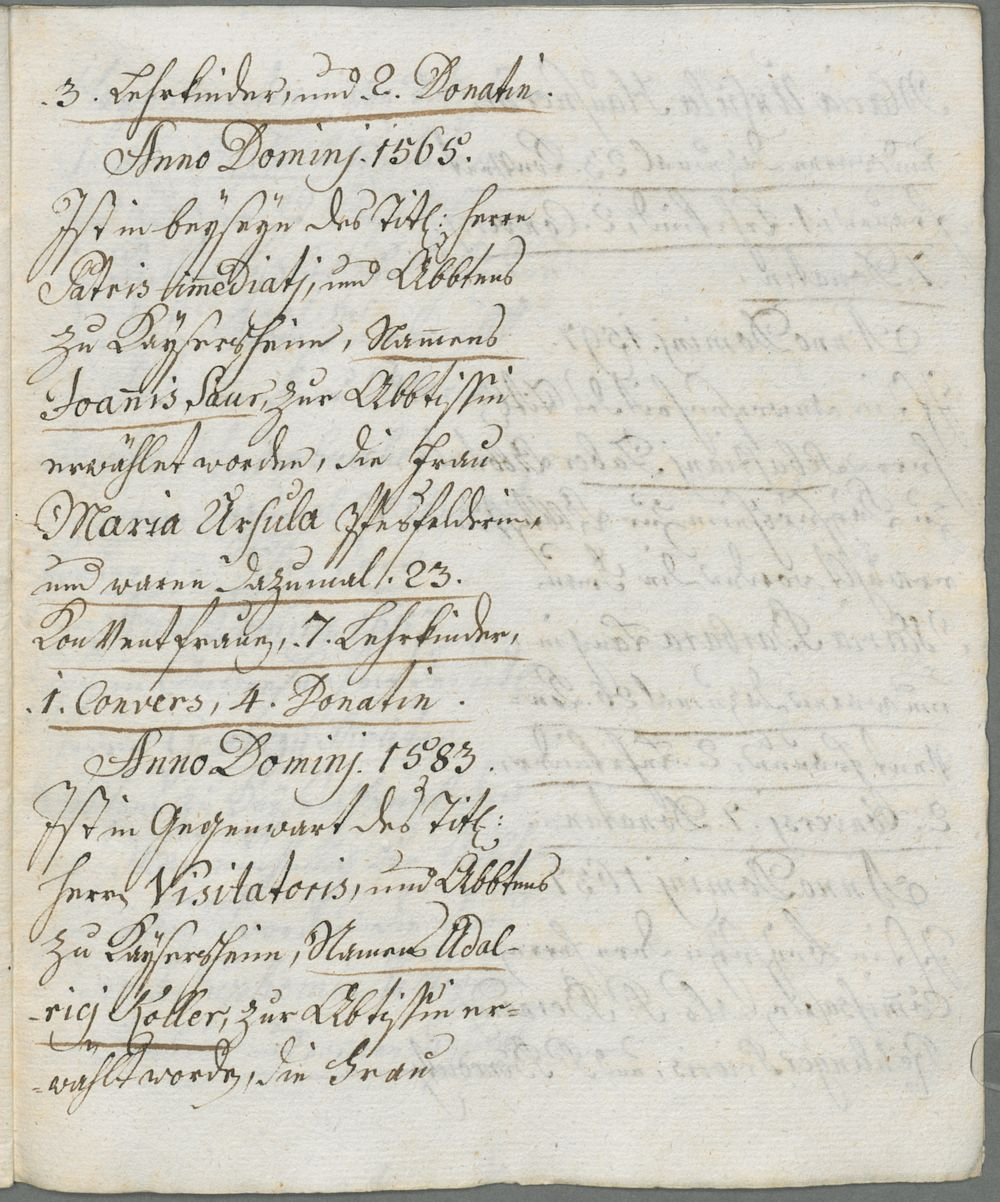 .3. Lehrkinder, und .2. Donatin.
Anno Dominj. 1565.
Ist in beyseyn des Titl: Herrn
Patris im̅ediatj, und Abbtens
zu Kaysersheim, Nam̅ens
Joan̅is Saur, zur Abbtissin
erwählet worden, die Frau
Maria Ursula
und waren dazumal .23.
KonVentfrauen, .7. Lehrkinder,
.1. Convers, 4. Donatin.
Anno Dominj. 1583.
Ist in Gegenwart des Titl:
Herrn Visitatoris, und Abbtens
zu Kaysersheim, Namens Udal-
-ricj Köller, zur Abtissin er=
=wählt worden, die Frau